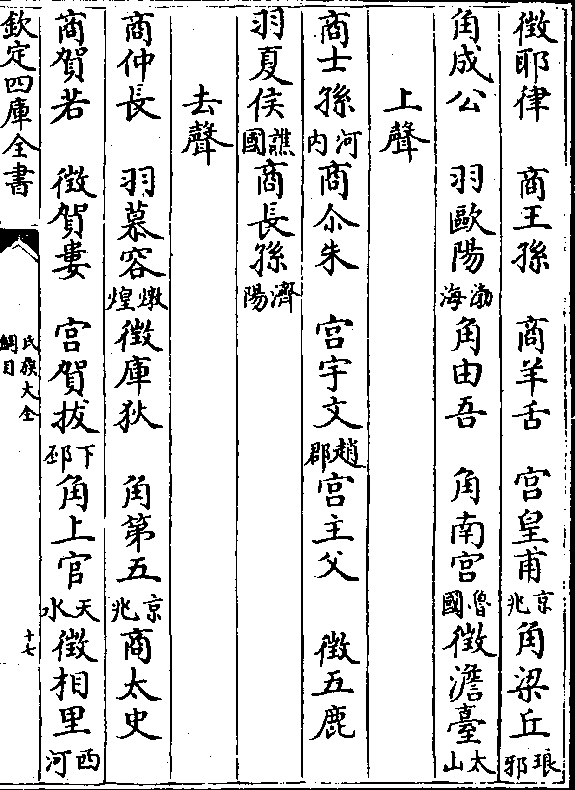 徵耶律　商王孫　商羊舌　宮皇甫京兆角梁丘琅邪
角成公　羽歐陽渤海角由吾　角南宮魯國徵澹臺太山
上聲
商士孫河内商尒朱　宮宇文趙郡宮主父　徵五鹿
羽夏侯譙國商長孫濟陽
去聲
商仲長　羽慕容燉煌徵庫狄　角第五京兆商太史
商賀若　徵賀婁　宮賀拔下邳角上官天水徵相里西河
欽定四庫全書
氏族大全
綱目
十七